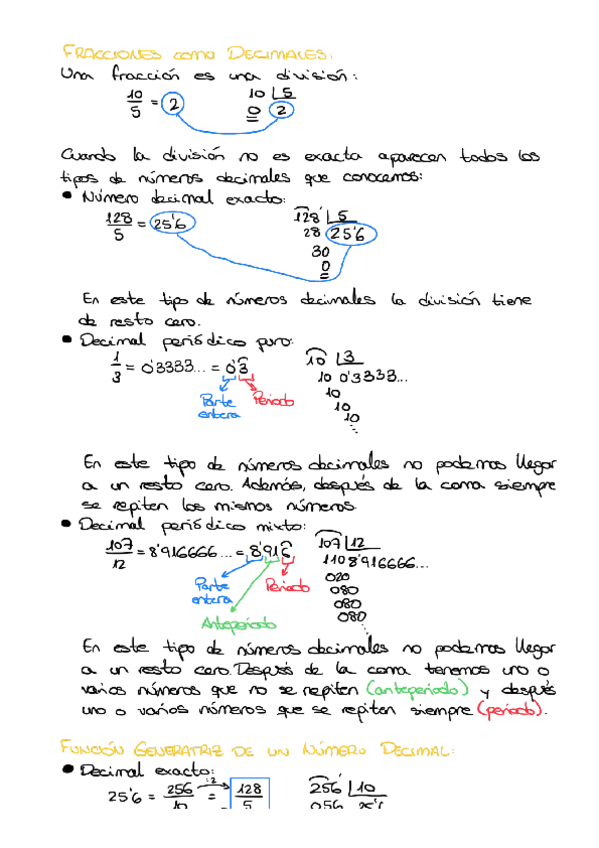 FRACCIONES como DECIMALES:
Una fracción es una división:
10/5 = 2    10 | 5
0  2
Cuando la división no es exacta aparecen todos los
tipos de números decimales que conocemos:
• Número decimal exacto:
128/5 = 25'6    128 | 5
28  25'6
30
0
En este tipo de números decimales la división tiene
de resto cero.
• Decimal periódico puro:
1/3 = 0'3333... = 0'3̂    10 | 3
10  0'3333...
Parte entera    Periodo    10
10
10
En este tipo de números decimales no podemos llegar
a un resto cero. Además, después de la coma siempre
se repiten los mismos números.
• Decimal periódico mixto:
107/12 = 8'916666... = 8'916̂    107 | 12
110  8'916666...
020
Parte entera    Periodo    080
080
Anteperiodo    080
En este tipo de números decimales no podemos llegar
a un resto cero. Después de la coma tenemos uno o
varios números que no se repiten (anteperiodo) y después
uno o varios números que se repiten siempre (periodo).
FUNCIÓN GENERATRIZ DE UN NÚMERO DECIMAL:
• Decimal exacto:
:2
25'6 = 256/10 = 128/5    256 | 10
056  25'6